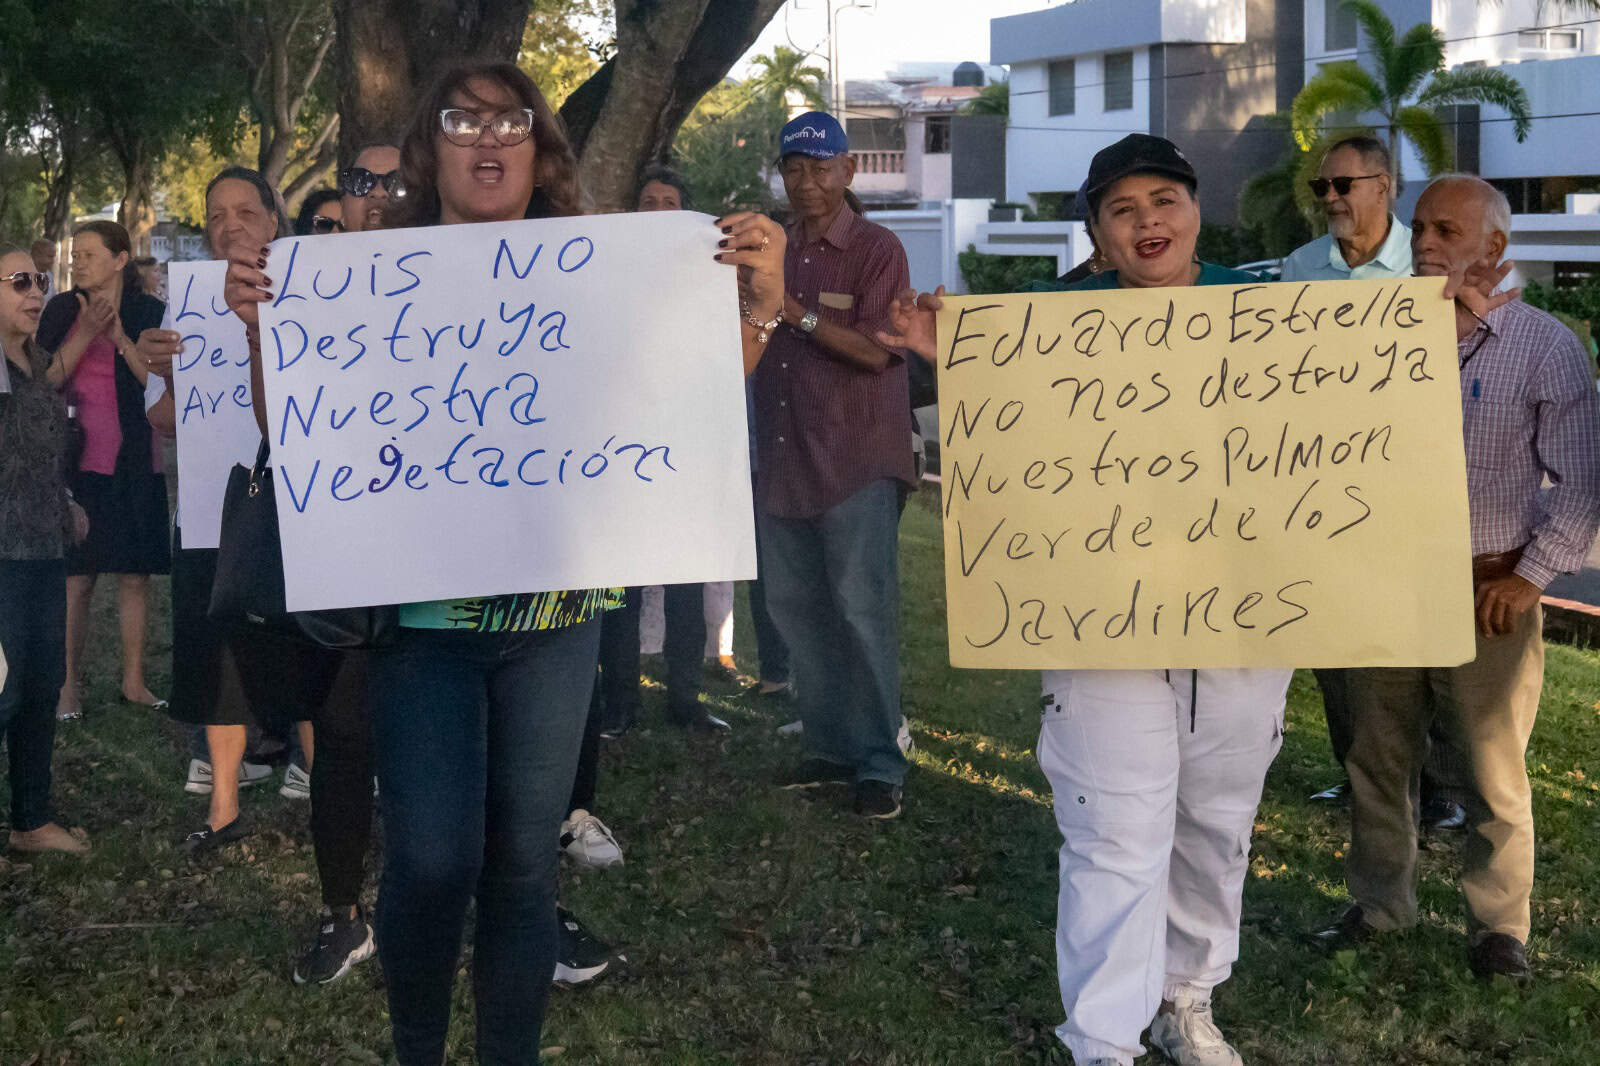 Luis no
Destruya
Nuestra
Vegetación
Eduardo Estrella
No nos destruya
Nuestros Pulmón
Verde de los
Jardines